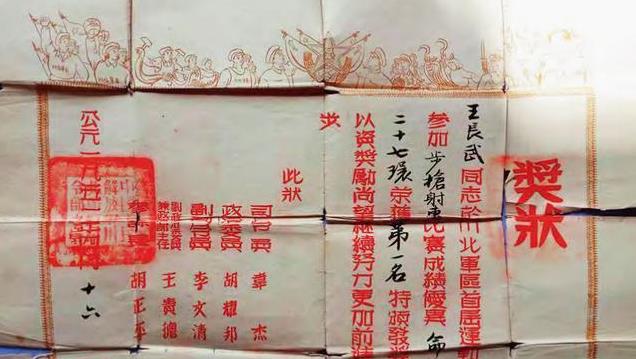 獎狀
王長武同志於川北軍區首屆運
參加步槍射擊比賽成績優異命
二十七環榮獲第一名特頒發獎
以資獎勵尚望繼續努力更加前
此狀
司令員 韋杰
政委員 胡耀邦
副司令員 李文清
王貴德
胡正平
公元一九五二 十六